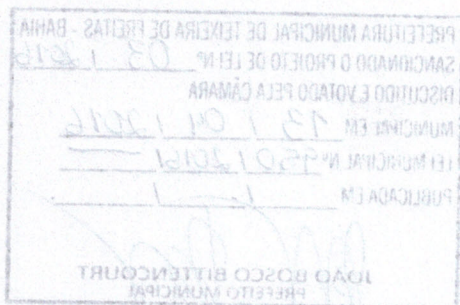 PREFEITURA MUNICIPAL DE TEIXEIRA DE FREITAS - BAHIA
SANCIONADO O PROJETO DE LEI Nº 03 / 2016
DISCUTIDO E VOTADO PELA CÂMARA
MUNICIPAL EM 13 / 04 / 2016
LEI MUNICIPAL Nº 950 / 2016
PUBLICADA EM / /
JOÃO BOSCO BITTENCOURT
PREFEITO MUNICIPAL